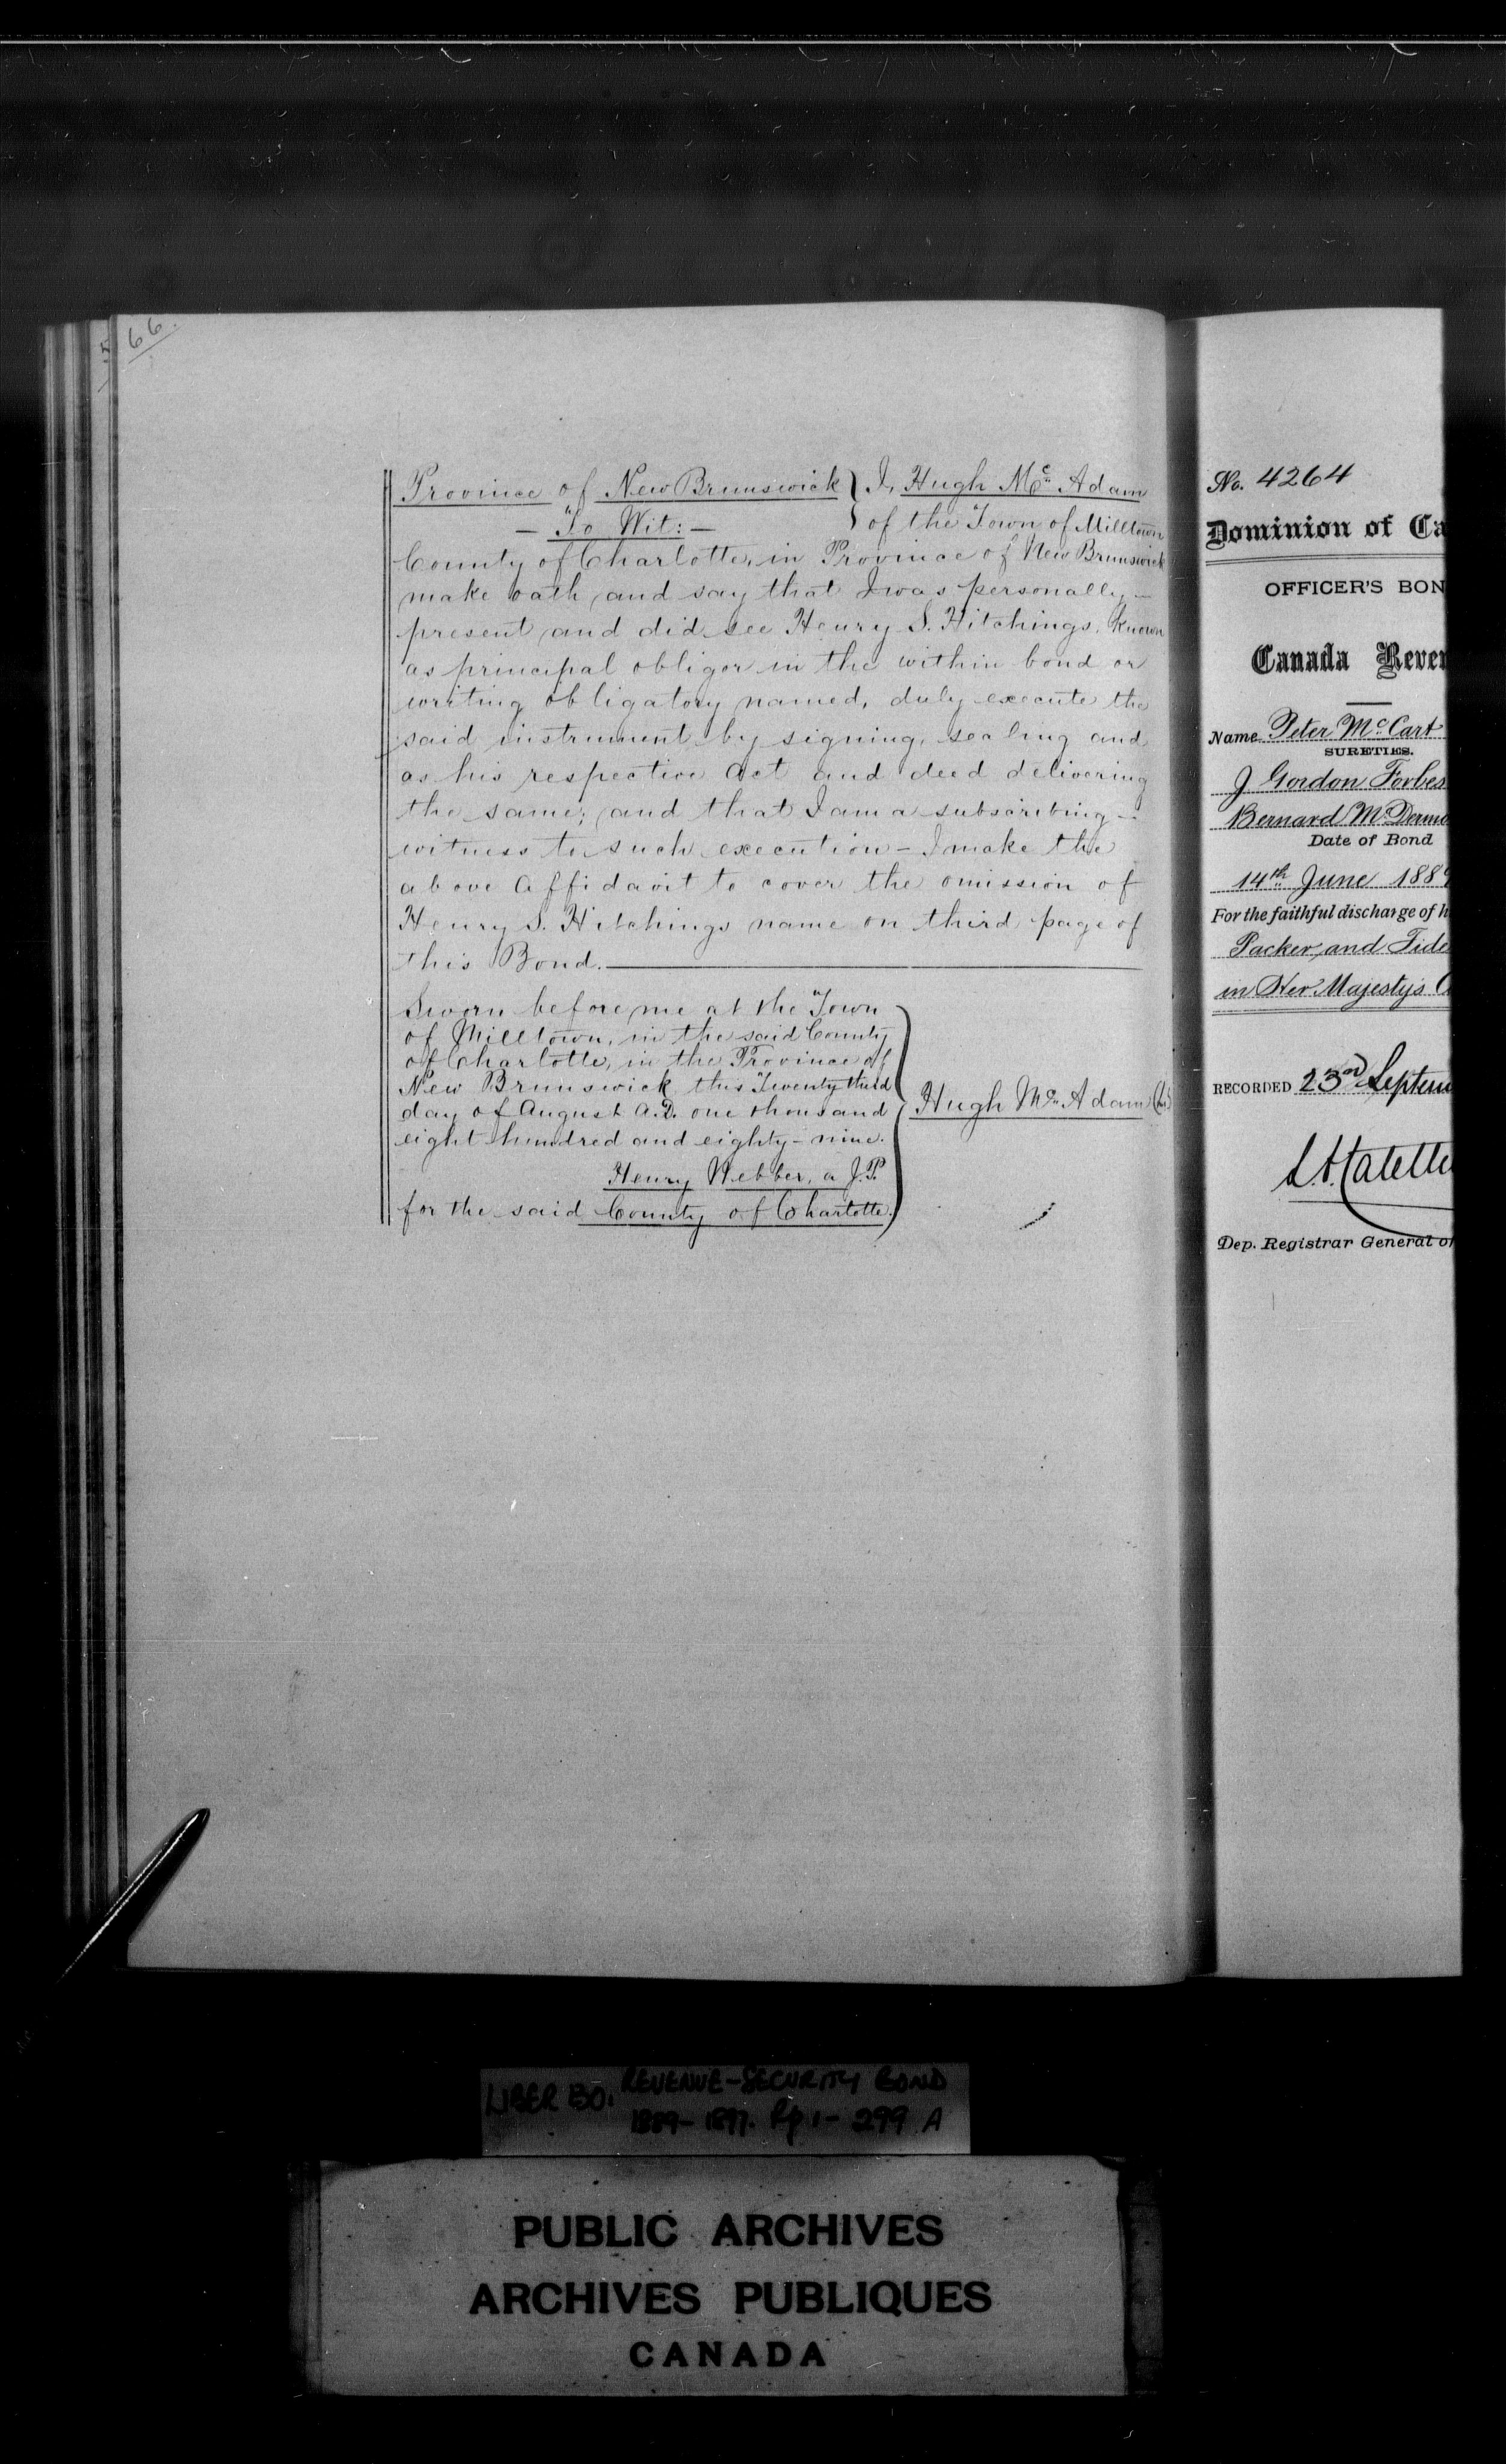 66.
Province of New Brunswick } I, Hugh Mc Adam
- To Wit: - } of the Town of Milltown
County of Charlotte, in Province of New Brunswick
make oath, and say that I was personally -
present, and did see Henry S. Hitchings, known
as principal obligor in the within bond or
writing obligatory named, duly execute the
said instrument by signing, sealing and
as his respective Act and deed delivering
the same; and that I am a subscribing -
witness to such execution - I make the
above Affidavit to cover the omission of
Henry S. Hitchings name on third page of
this Bond.
Sworn before me at the Town
of Milltown, in the said County
of Charlotte, in the Province of
New Brunswick this Twenty third
day of August A.D. one thousand
eight hundred and eighty-nine.
Hugh Mc Adam
Henry Webber, a J.P.
for the said County of Charlotte.
No. 4264
Dominion of Ca
OFFICER'S BON
Canada Reven
Name Peter McCart
SURETIES.
J Gordon Forbes
Bernard McDermo
Date of Bond
14th June 1889
For the faithful discharge of h
Packer, and Tide
in Her Majesty's C
RECORDED 23rd Septem
Dep. Registrar General of
LIBER 130. REVENUE-SECURITY BOND
1889-1897. Pp 1-299 A
PUBLIC ARCHIVES
ARCHIVES PUBLIQUES
CANADA